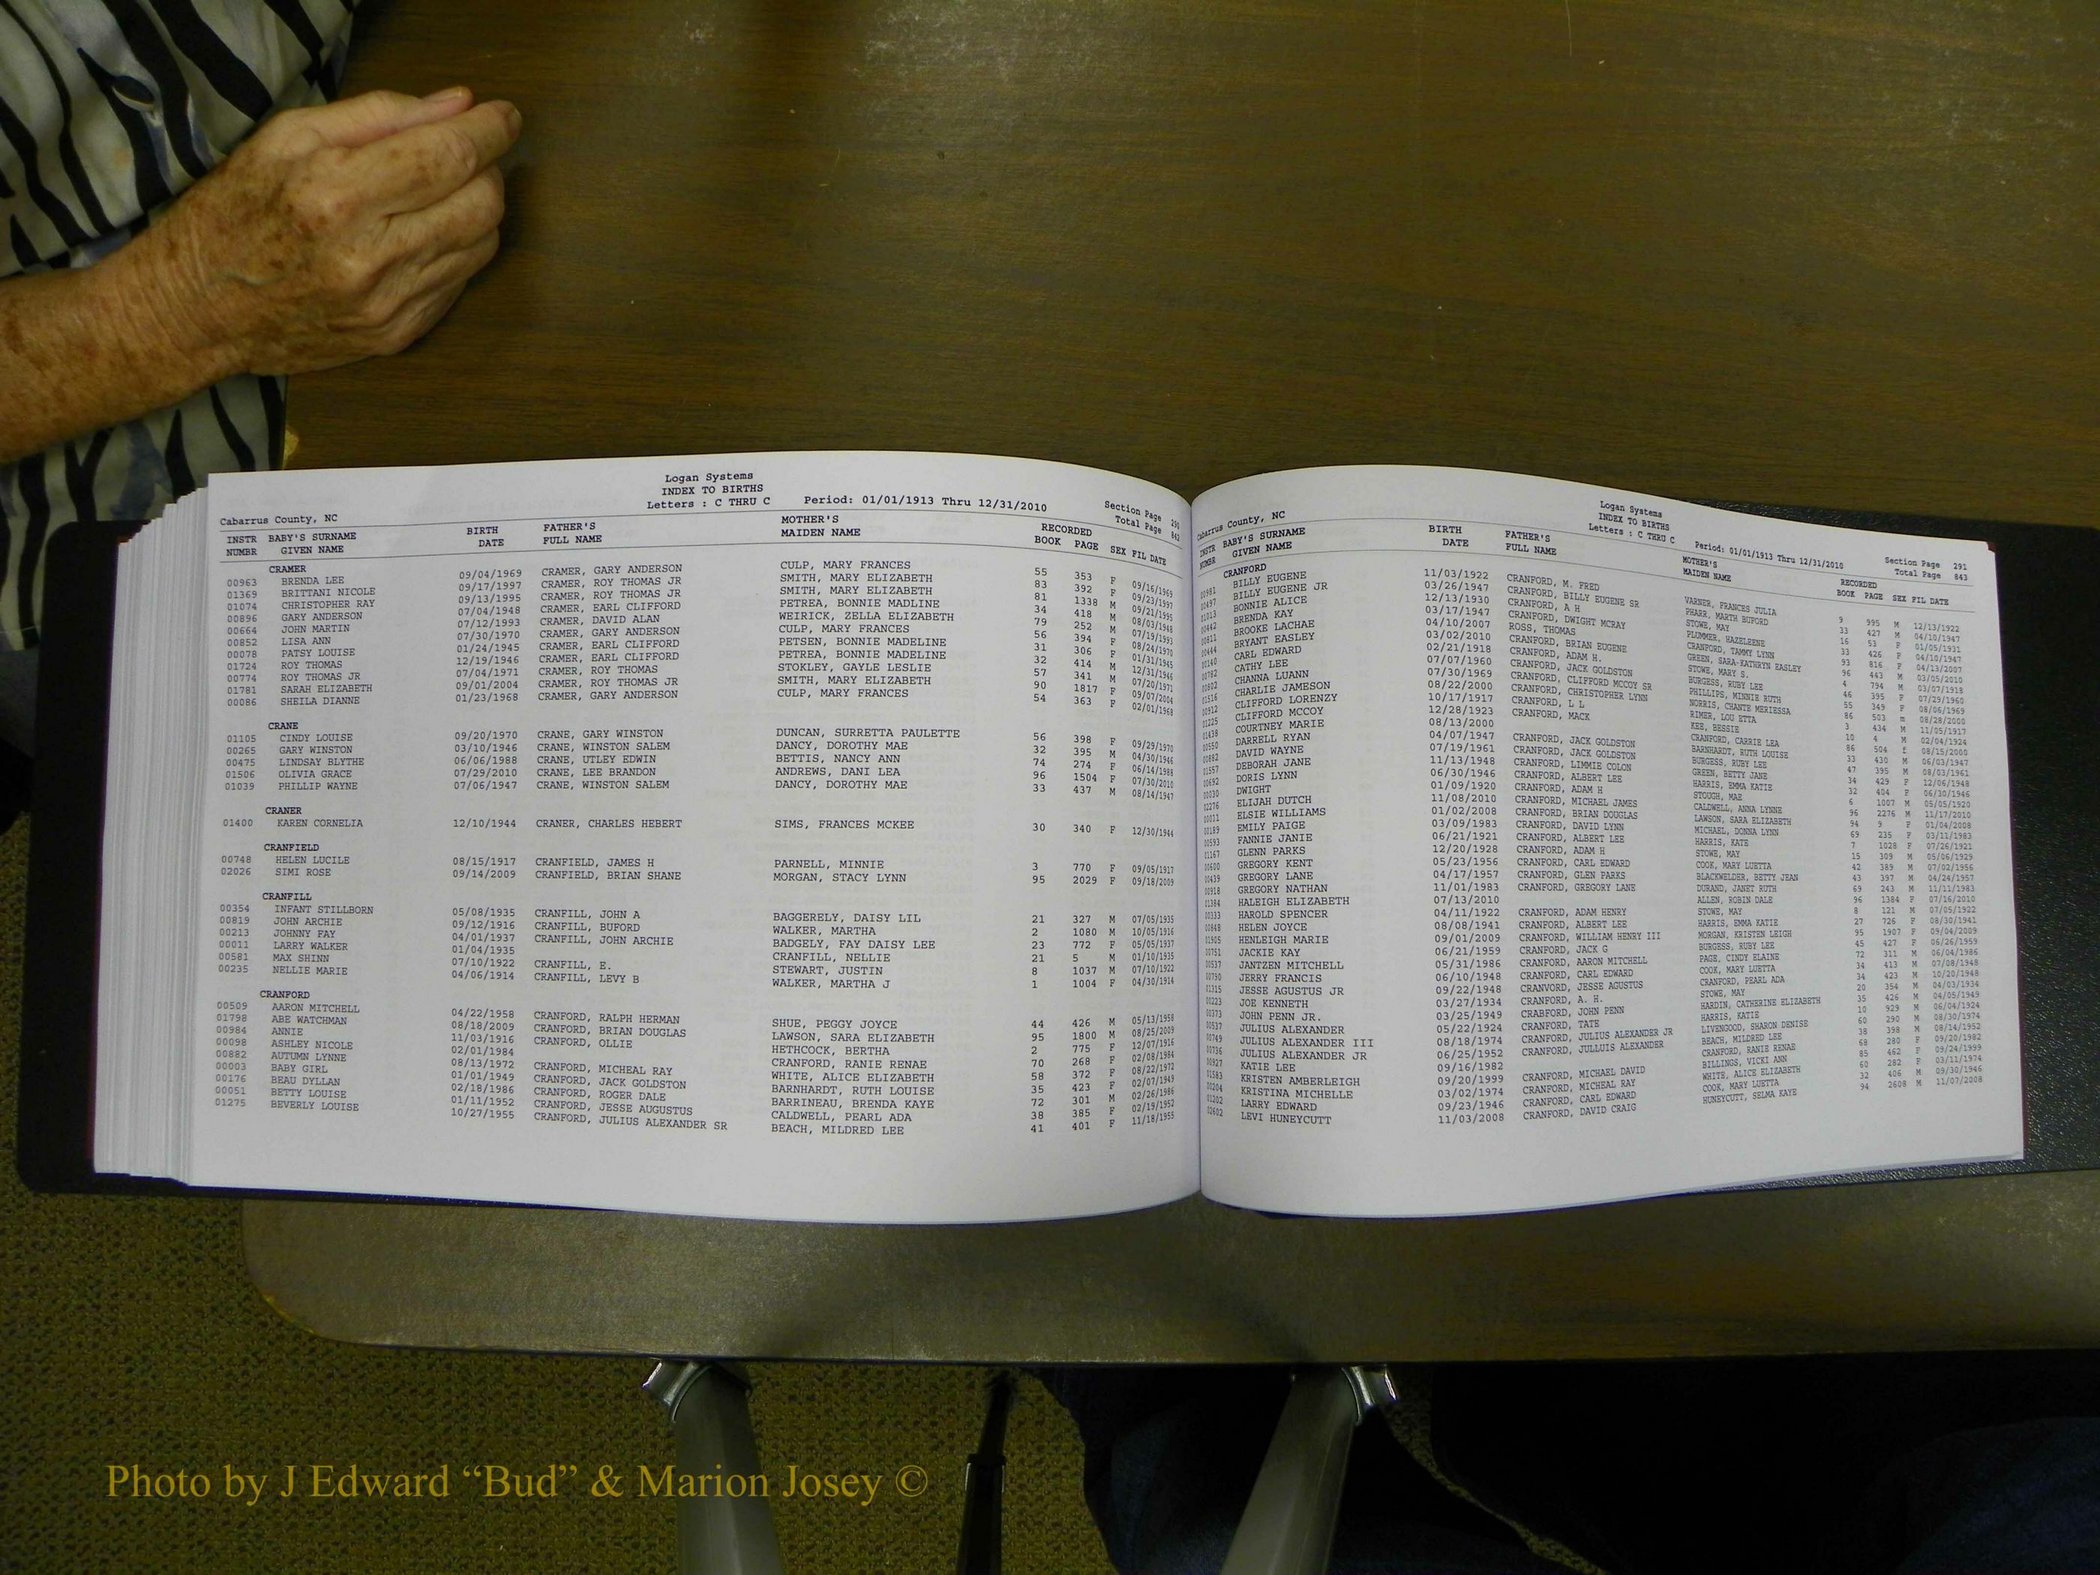 Logan Systems
INDEX TO BIRTHS
Letters : C THRU C Period: 01/01/1913 Thru 12/31/2010
Cabarrus County, NC Section Page 290
Total Page 843
INSTR BABY'S SURNAME BIRTH FATHER'S MOTHER'S RECORDED
NUMBR GIVEN NAME DATE FULL NAME MAIDEN NAME BOOK PAGE SEX FIL DATE
CRAMER
00963 BRENDA LEE 09/04/1969 CRAMER, GARY ANDERSON CULP, MARY FRANCES 55 353 F 09/16/1969
01369 BRITTANI NICOLE 09/17/1997 CRAMER, ROY THOMAS JR SMITH, MARY ELIZABETH 83 392 F 09/23/1997
01074 CHRISTOPHER RAY 09/13/1995 CRAMER, ROY THOMAS JR SMITH, MARY ELIZABETH 81 1338 M 09/21/1995
00896 GARY ANDERSON 07/04/1948 CRAMER, EARL CLIFFORD PETREA, BONNIE MADLINE 34 418 M 08/03/1948
00664 JOHN MARTIN 07/12/1993 CRAMER, DAVID ALAN WEIRICK, ZELLA ELIZABETH 79 252 M 07/19/1993
00852 LISA ANN 07/30/1970 CRAMER, GARY ANDERSON CULP, MARY FRANCES 56 394 F 08/24/1970
00078 PATSY LOUISE 01/24/1945 CRAMER, EARL CLIFFORD PETSEN, BONNIE MADELINE 31 306 F 01/31/1945
01724 ROY THOMAS 12/19/1946 CRAMER, EARL CLIFFORD PETREA, BONNIE MADELINE 32 414 M 12/31/1946
00774 ROY THOMAS JR 07/04/1971 CRAMER, ROY THOMAS STOKLEY, GAYLE LESLIE 57 341 M 07/20/1971
01781 SARAH ELIZABETH 09/01/2004 CRAMER, ROY THOMAS JR SMITH, MARY ELIZABETH 90 1817 F 09/07/2004
00086 SHEILA DIANNE 01/23/1968 CRAMER, GARY ANDERSON CULP, MARY FRANCES 54 363 F 02/01/1968
CRANE
01105 CINDY LOUISE 09/20/1970 CRANE, GARY WINSTON DUNCAN, SURRETTA PAULETTE 56 398 F 09/29/1970
00265 GARY WINSTON 03/10/1946 CRANE, WINSTON SALEM DANCY, DOROTHY MAE 32 395 M 04/30/1946
00475 LINDSAY BLYTHE 06/06/1988 CRANE, UTLEY EDWIN BETTIS, NANCY ANN 74 274 F 06/14/1988
01506 OLIVIA GRACE 07/29/2010 CRANE, LEE BRANDON ANDREWS, DANI LEA 96 1504 F 07/30/2010
01039 PHILLIP WAYNE 07/06/1947 CRANE, WINSTON SALEM DANCY, DOROTHY MAE 33 437 M 08/14/1947
CRANER
01400 KAREN CORNELIA 12/10/1944 CRANER, CHARLES HEBERT SIMS, FRANCES MCKEE 30 340 F 12/30/1944
CRANFIELD
00748 HELEN LUCILE 08/15/1917 CRANFIELD, JAMES H PARNELL, MINNIE 3 770 F 09/05/1917
02026 SIMI ROSE 09/14/2009 CRANFIELD, BRIAN SHANE MORGAN, STACY LYNN 95 2029 F 09/18/2009
CRANFILL
00354 INFANT STILLBORN 05/08/1935 CRANFILL, JOHN A BAGGERELY, DAISY LIL 21 327 M 07/05/1935
00819 JOHN ARCHIE 09/12/1916 CRANFILL, BUFORD WALKER, MARTHA 2 1080 M 10/05/1916
00213 JOHNNY FAY 04/01/1937 CRANFILL, JOHN ARCHIE BADGELY, FAY DAISY LEE 23 772 F 05/05/1937
00011 LARRY WALKER 01/04/1935 CRANFILL, NELLIE 21 5 M 01/10/1935
00581 MAX SHINN 07/10/1922 CRANFILL, E. STEWART, JUSTIN 8 1037 M 07/10/1922
00235 NELLIE MARIE 04/06/1914 CRANFILL, LEVY B WALKER, MARTHA J 1 1004 F 04/30/1914
CRANFORD
00509 AARON MITCHELL 04/22/1958 CRANFORD, RALPH HERMAN SHUE, PEGGY JOYCE 44 426 M 05/13/1958
01798 ABE WATCHMAN 08/18/2009 CRANFORD, BRIAN DOUGLAS LAWSON, SARA ELIZABETH 95 1800 M 08/25/2009
00984 ANNIE 11/03/1916 CRANFORD, OLLIE HETHCOCK, BERTHA 2 775 F 12/07/1916
00098 ASHLEY NICOLE 02/01/1984 CRANFORD, RANIE RENAE 70 268 F 02/08/1984
00882 AUTUMN LYNNE 08/13/1972 CRANFORD, MICHEAL RAY WHITE, ALICE ELIZABETH 58 372 F 08/22/1972
00003 BABY GIRL 01/01/1949 CRANFORD, JACK GOLDSTON BARNHARDT, RUTH LOUISE 35 423 F 02/07/1949
00176 BEAU DYLLAN 02/18/1986 CRANFORD, ROGER DALE BARRINEAU, BRENDA KAYE 72 301 M 02/26/1986
00051 BETTY LOUISE 01/11/1952 CRANFORD, JESSE AUGUSTUS CALDWELL, PEARL ADA 38 385 F 02/19/1952
01275 BEVERLY LOUISE 10/27/1955 CRANFORD, JULIUS ALEXANDER SR BEACH, MILDRED LEE 41 401 F 11/18/1955
Logan Systems
INDEX TO BIRTHS
Letters : C THRU C Period: 01/01/1913 Thru 12/31/2010
Cabarrus County, NC Section Page 291
Total Page 843
INSTR BABY'S SURNAME BIRTH FATHER'S MOTHER'S RECORDED
NUMBR GIVEN NAME DATE FULL NAME MAIDEN NAME BOOK PAGE SEX FIL DATE
CRANFORD
00981 BILLY EUGENE 11/03/1922 CRANFORD, M. FRED VARNER, FRANCES JULIA 9 995 M 12/13/1922
00497 BILLY EUGENE JR 03/26/1947 CRANFORD, BILLY EUGENE SR PHARR, MARTH BUFORD 33 427 M 04/10/1947
01013 BONNIE ALICE 12/13/1930 CRANFORD, A H STOWE, MAY 16 53 F 01/05/1931
00442 BRENDA KAY 03/17/1947 CRANFORD, DWIGHT MCRAY PLUMMER, HAZELEENE 33 426 F 04/10/1947
00811 BROOKE LACHAE 04/10/2007 ROSS, THOMAS CRANFORD, TAMMY LYNN 93 816 F 04/13/2007
00444 BRYANT EASLEY 03/02/2010 CRANFORD, BRIAN EUGENE GREEN, SARA-KATHRYN EASLEY 96 443 M 03/05/2010
00140 CARL EDWARD 02/21/1918 CRANFORD, ADAM H. STOWE, MARY S. 4 794 M 03/07/1918
00782 CATHY LEE 07/07/1960 CRANFORD, JACK GOLDSTON BURGESS, RUBY LEE 46 395 F 07/29/1960
00802 CHANNA LUANN 07/30/1969 CRANFORD, CLIFFORD MCCOY SR PHILLIPS, MINNIE RUTH 55 349 F 08/06/1969
01516 CHARLIE JAMESON 08/22/2000 CRANFORD, CHRISTOPHER LYNN NORRIS, CHANTE MERIESSA 86 503 m 08/28/2000
00912 CLIFFORD LORENZY 10/17/1917 CRANFORD, L L RIMER, LOU ETTA 3 434 M 11/05/1917
01225 CLIFFORD MCCOY 12/28/1923 CRANFORD, MACK KEE, BESSIE 10 4 M 02/04/1924
01438 COURTNEY MARIE 08/13/2000 CRANFORD, CARRIE LEA 86 504 f 08/15/2000
00550 DARRELL RYAN 04/07/1947 CRANFORD, JACK GOLDSTON BARNHARDT, RUTH LOUISE 33 430 M 06/03/1947
00882 DAVID WAYNE 07/19/1961 CRANFORD, JACK GOLDSTON BURGESS, RUBY LEE 47 395 M 08/03/1961
01557 DEBORAH JANE 11/13/1948 CRANFORD, LIMMIE COLON GREEN, BETTY JANE 34 429 F 12/06/1948
00692 DORIS LYNN 06/30/1946 CRANFORD, ALBERT LEE HARRIS, EMMA KATIE 32 404 F 06/30/1946
00030 DWIGHT 01/09/1920 CRANFORD, ADAM H STOUGH, MAE 6 1007 M 05/05/1920
02276 ELIJAH DUTCH 11/08/2010 CRANFORD, MICHAEL JAMES CALDWELL, ANNA LYNNE 96 2276 M 11/17/2010
00011 ELSIE WILLIAMS 01/02/2008 CRANFORD, BRIAN DOUGLAS LAWSON, SARA ELIZABETH 94 9 F 01/04/2008
00189 EMILY PAIGE 03/09/1983 CRANFORD, DAVID LYNN MICHAEL, DONNA LYNN 69 235 F 03/11/1983
00593 FANNIE JANIE 06/21/1921 CRANFORD, ALBERT LEE HARRIS, KATE 7 1028 F 07/26/1921
01167 GLENN PARKS 12/20/1928 CRANFORD, ADAM H STOWE, MAY 15 309 M 05/06/1929
00600 GREGORY KENT 05/23/1956 CRANFORD, CARL EDWARD COOK, MARY LUETTA 42 389 M 07/02/1956
00439 GREGORY LANE 04/17/1957 CRANFORD, GLEN PARKS BLACKWELDER, BETTY JEAN 43 397 M 04/24/1957
00918 GREGORY NATHAN 11/01/1983 CRANFORD, GREGORY LANE DURAND, JANET RUTH 69 243 M 11/11/1983
01384 HALEIGH ELIZABETH 07/13/2010 ALLEN, ROBIN DALE 96 1384 F 07/16/2010
00333 HAROLD SPENCER 04/11/1922 CRANFORD, ADAM HENRY STOWE, MAY 8 121 M 07/05/1922
00848 HELEN JOYCE 08/08/1941 CRANFORD, ALBERT LEE HARRIS, EMMA KATIE 27 726 F 08/30/1941
01905 HENLEIGH MARIE 09/01/2009 CRANFORD, WILLIAM HENRY III MORGAN, KRISTEN LEIGH 95 1907 F 09/04/2009
00751 JACKIE KAY 06/21/1959 CRANFORD, JACK G BURGESS, RUBY LEE 45 427 F 06/26/1959
00537 JANTZEN MITCHELL 05/31/1986 CRANFORD, AARON MITCHELL PAGE, CINDY ELAINE 72 311 M 06/04/1986
00750 JERRY FRANCIS 06/10/1948 CRANFORD, CARL EDWARD COOK, MARY LUETTA 34 413 M 07/08/1948
01315 JESSE AGUSTUS JR 09/22/1948 CRANVORD, JESSE AGUSTUS CRANFORD, PEARL ADA 34 423 M 10/20/1948
00223 JOE KENNETH 03/27/1934 CRANFORD, A. H. STOWE, MAY 20 354 M 04/03/1934
00373 JOHN PENN JR. 03/25/1949 CRABFORD, JOHN PENN HARDIN, CATHERINE ELIZABETH 35 426 M 04/05/1949
00537 JULIUS ALEXANDER 05/22/1924 CRANFORD, TATE HARRIS, KATIE 10 M 06/04/1924
00749 JULIUS ALEXANDER III 08/18/1974 CRANFORD, JULIUS ALEXANDER JR LIVENGOOD, SHARON DENISE 60 290 M 08/30/1974
00736 JULIUS ALEXANDER JR 06/25/1952 CRANFORD, JULLUIS ALEXANDER BEACH, MILDRED LEE 38 398 M 08/14/1952
00927 KATIE LEE 09/16/1982 CRANFORD, RANIE RENAE 68 280 F 09/20/1982
01583 KRISTEN AMBERLEIGH 09/20/1999 CRANFORD, MICHAEL DAVID BILLINGS, VICKI ANN 85 462 F 09/24/1999
00204 KRISTINA MICHELLE 03/02/1974 CRANFORD, MICHEAL RAY WHITE, ALICE ELIZABETH 60 282 F 03/11/1974
01202 LARRY EDWARD 09/23/1946 CRANFORD, CARL EDWARD COOK, MARY LUETTA 32 406 M 09/30/1946
02602 LEVI HUNEYCUTT 11/03/2008 CRANFORD, DAVID CRAIG HUNEYCUTT, SELMA KAYE 94 2608 M 11/07/2008
Photo by J Edward “Bud” & Marion Josey ©